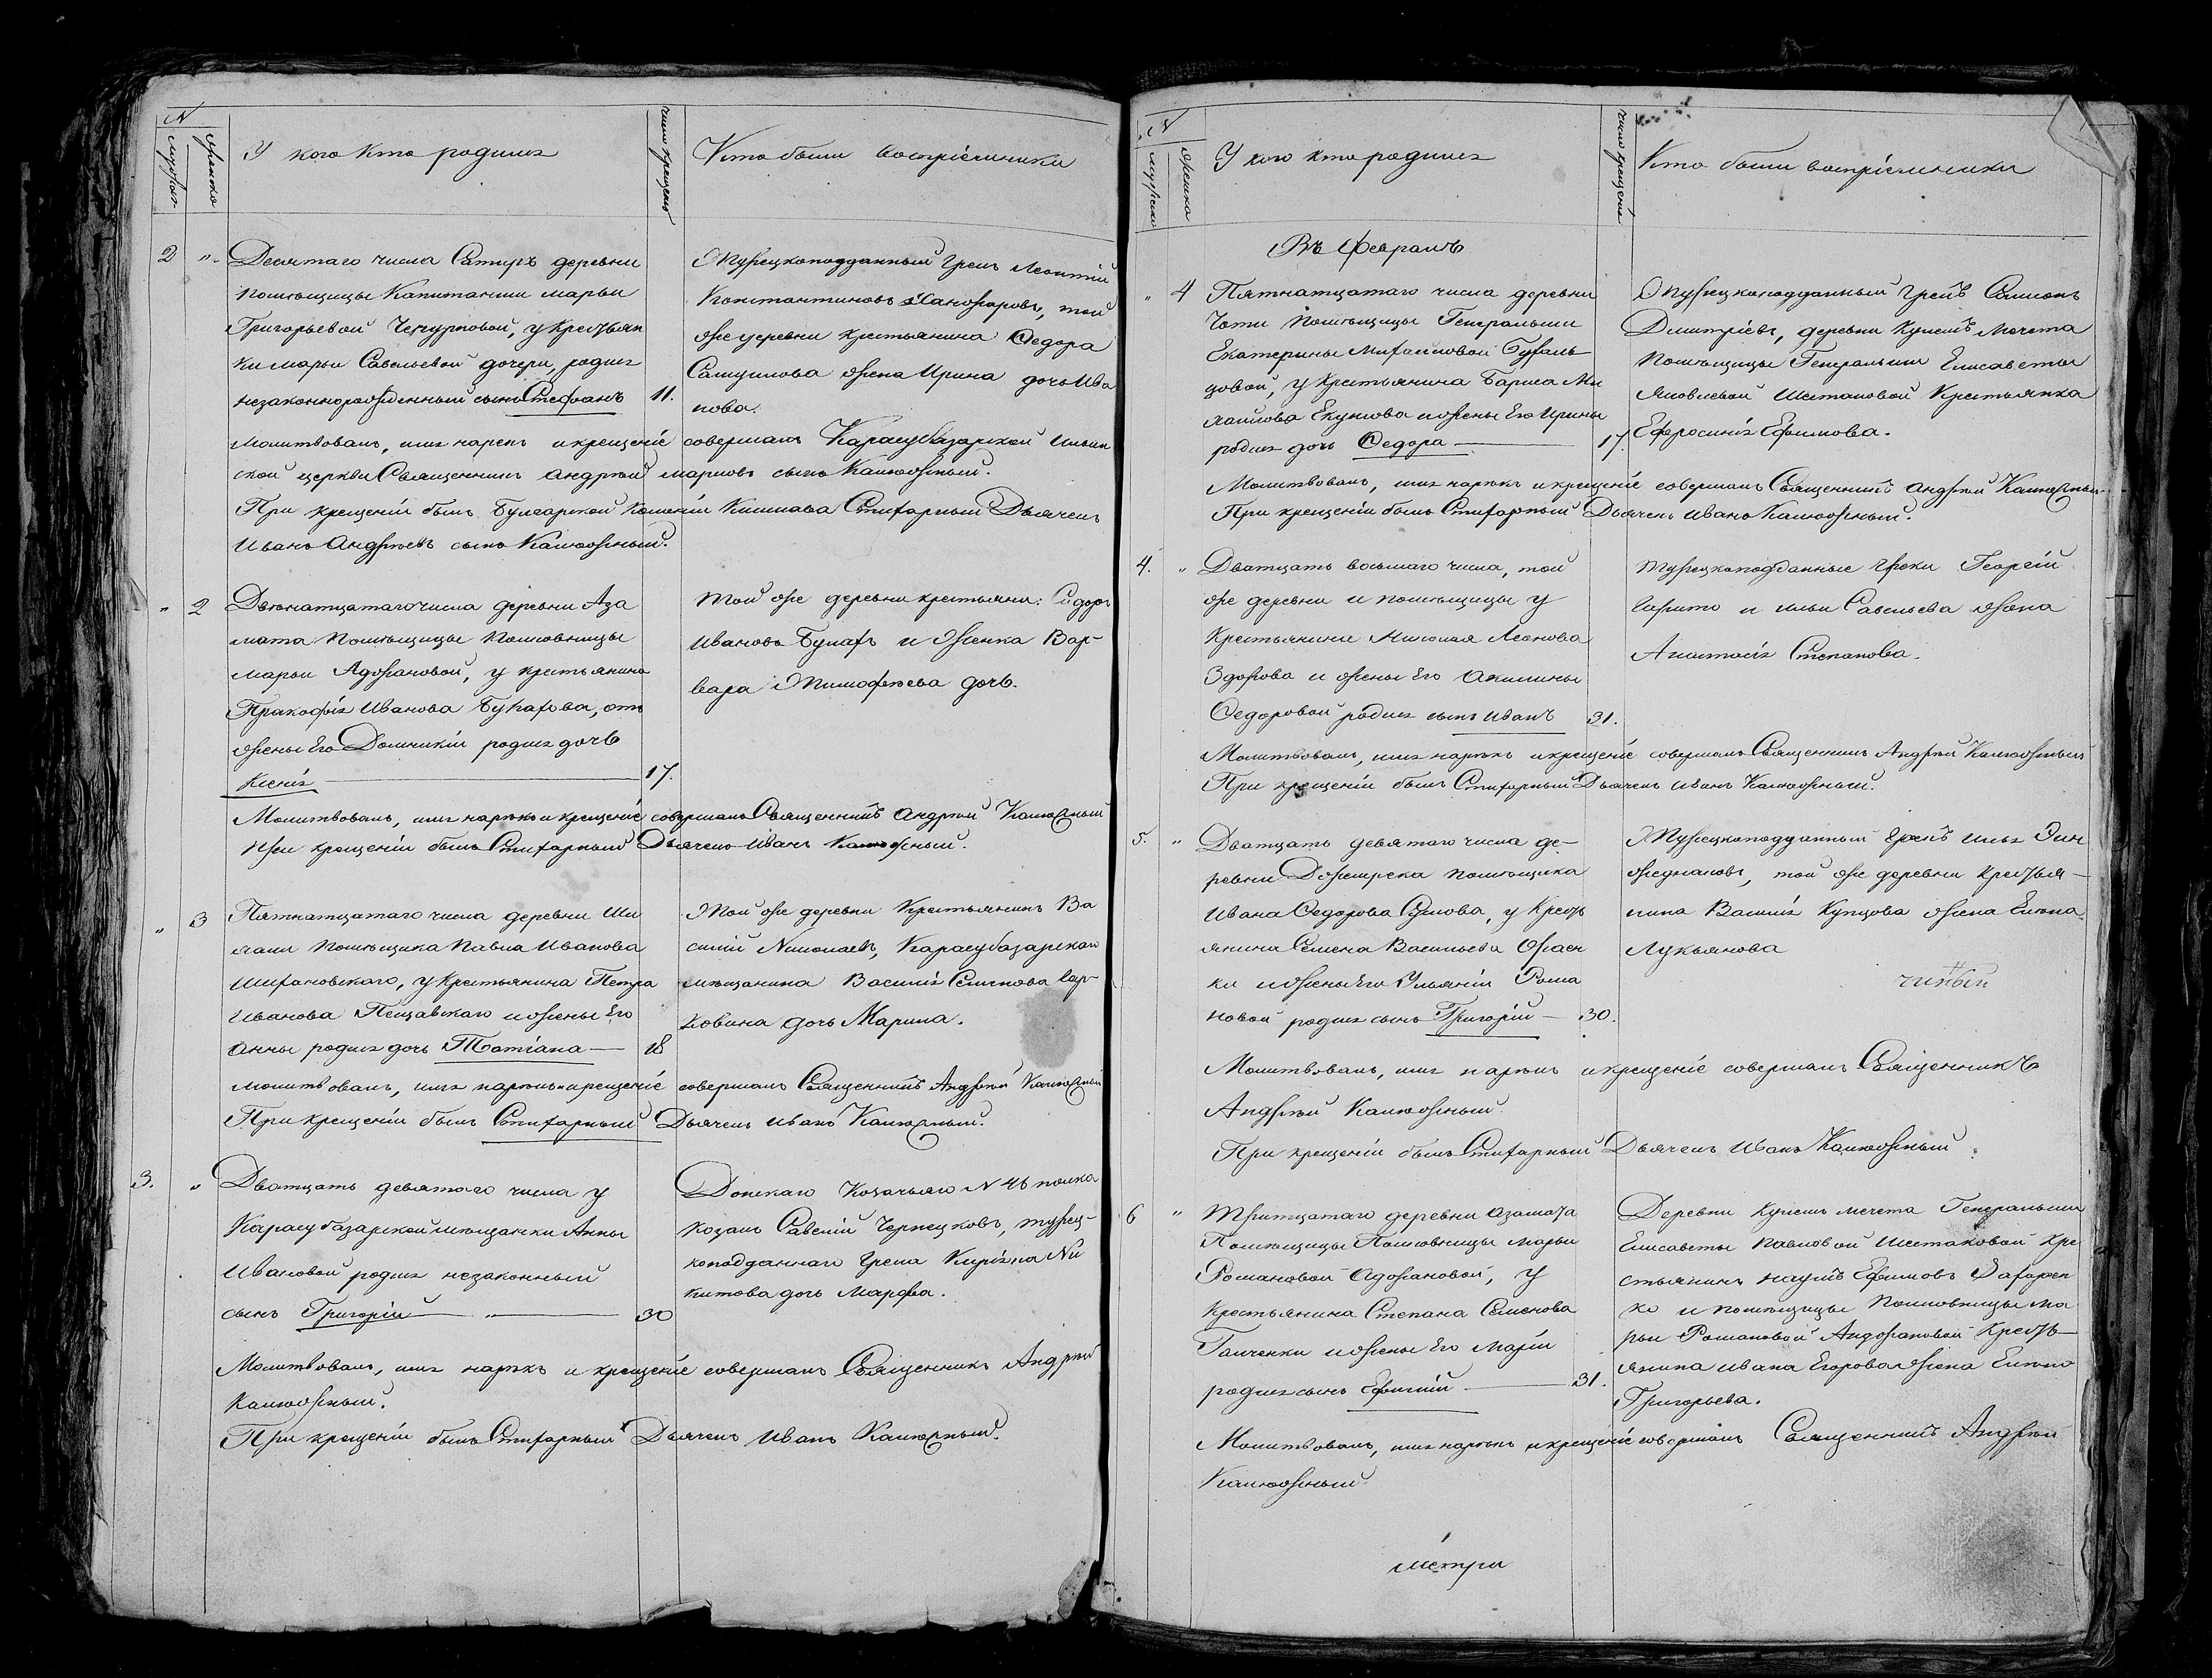 N
мужеск
женска
У кого кто родился
число крещенія
Кто были воспріемники
2 "
Десятаго числа Сатиръ деревни
помѣщицы Капитанши Марьи
Григорьевой Чепурновой, у крестьян
ки Марьи Савельевой дочери, родился
незаконнорожденный сынъ Стефанъ 11.
Турецкоподданный Грекъ Леонтій
Константиновъ, той
же деревни крестьянина Федора
Самуилова жена Ирина дочь Ива
нова.
Молитвовалъ, имя нарекъ и крещеніе совершалъ Карасубазарской Ильин
ской церкви Священникъ Андрей Марковъ сынъ Калюжный.
При крещеніи былъ Булгарской Колоніи Кишлава Стихарный Дьячекъ
Иванъ Андреевъ сынъ Калюжный.
" 2
Двенатцатаго числа деревни Аза
мата помѣщицы Полковницы
Марьи Адожановой, у крестьянина
Пракофія Иванова Бухарова, отъ
жены Его Домникіи родися дочь
Ксенія 17.
Той же деревни крестьяни: Сидоръ
Ивановъ Бухаръ и женка Вар-
вара Тимофеева дочь.
Молитвовалъ, имя нарѣкъ и крещеніе совершалъ Священникъ Андрей Калюжный
При крещеніи былъ Стихарный Дьячекъ Иванъ Калюжный.
" 3
Пятнатцатаго числа деревни Ши
помѣщика Павла Иванова
Шираковскаго, у крестьянина Петра
Иванова и жены Его
Анны родися дочь Татіана 18
Той же деревни Крестьянинъ Ва
силій Николаевъ, Карасубазарскаго
мѣщанина Василія Семенова
дочь Марина.
Молитвовалъ, имя нарѣкъ и крещеніе совершалъ Священникъ Андрей Калюжный
При крещеніи былъ Стихарный Дьячекъ Иванъ Калюжный.
3. "
Дватцать девятаго числа у
Карасубазарской мѣщанки Анны
Ивановой родися незаконный
сынъ Григорій " 30
Донскаго Козачьяго N 46 полка
Козакъ Савелій Чернецковъ, турец-
коподданнаго Грека Киріяка Ни
китова дочь Марфа.
Молитвовалъ, имя нарѣкъ и крещеніе совершалъ Священникъ Андрей
Калюжный.
При крещеніи былъ Стихарный Дьячекъ Иванъ Калюжный.
N
мужеска
женска
У кого кто родился
число крещенія
Кто были воспріемники
Въ Февралѣ
" 4
Пятнатцатаго числа деревни
Чоти помѣщицы Генеральши
Екатерины Михайловой
довой, у крестьянина Бариса Ми
хайлова Екимова и жены Его Ирины
родися дочь Федора 17.
Турецкоподданный Грекъ Симеонъ
Дмитріевъ, деревни Кучешъ Мечета
помѣщицы Генеральши Елисаветы
Яковлевой Шестаковой Крестьянка
Ефросинія Ефимова.
Молитвовалъ, имя нарѣкъ и крещеніе совершалъ Священникъ Андрей Калюжный.
При крещеніи былъ Стихарный Дьячекъ Иванъ Калюжный.
4. "
Дватцать восьмаго числа, той
же деревни и помѣщицы у
Крестьянина Николая Леонова
Здорова и жены Его Акилины
Федоровой родися сынъ Иванъ 31.
Турецкоподданные Греки Георгій
и Ильи Савельева жена
Анастасія Степанова.
Молитвовалъ, имя нарѣкъ и крещеніе совершалъ Священникъ Андрей Калюжный
При крещеніи былъ Стихарный Дьячекъ Иванъ Калюжный.
5. "
Дватцать девятаго числа де-
ревни помѣщика
Ивана Федорова, у крестъ
янина Семена Васильева
ки и жены Его Ульяніи Рома
новой родися сынъ Григорій 30.
Турецкоподданный Грекъ Илья
той же деревни крестья-
нина Василія Купцова жена Елена
Лукьянова
Молитвовалъ, имя нарѣкъ и крещеніе совершалъ Священникъ
Андрей Калюжный.
При крещеніи былъ Стихарный Дьячекъ Иванъ Калюжный.
6 "
Тритцатаго деревни Азамата
Помѣщицы Полковницы Марьи
Романовой Адожановой, у
Крестьянина Степана Семенова
Ганченки и жены Его Маріи
родися сынъ Ефимій 31.
Деревни Кучешъ мечета Генеральши
Елисаветы Павловой Шестаковой кре
стьянинъ Наумъ Ефимовъ Захарен
ко и помѣщицы Полковницы Ма
рьи Романовой Андожановой Кресть-
янина Ивана Егорова жена Елена
Григорьева.
Молитвовалъ, имя нарѣкъ и крещеніе совершалъ Священникъ Андрей
Калюжный.
Метри